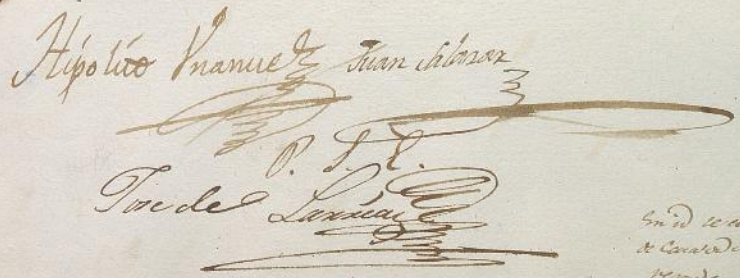 Hipolito Vnanue Juan Salazar
P. S. E.
Jose de Larrea